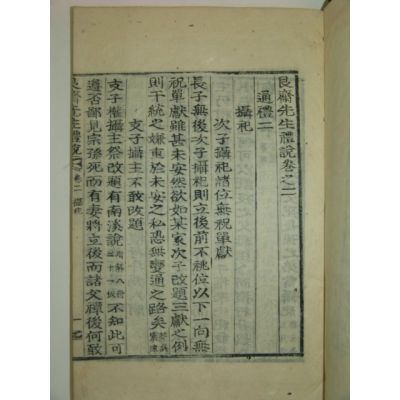 艮齋先生禮說卷之二
通禮二
攝祀
次子攝祀諸位無祝單獻
長子無後次子攝祀則立後前不祧位以下一向無
祝單獻雖甚未安然欲如某家次子改題三獻之例
則干統之嫌東於未安之私恐無變通之路矣
支子攝主不敢改題
支子權攝主祭改題有南溪說 不知此可
遵否鄙見宗孫死而有妻將立後而諸父禫後何敢
艮齋先生禮說 卷二 攝祀 一